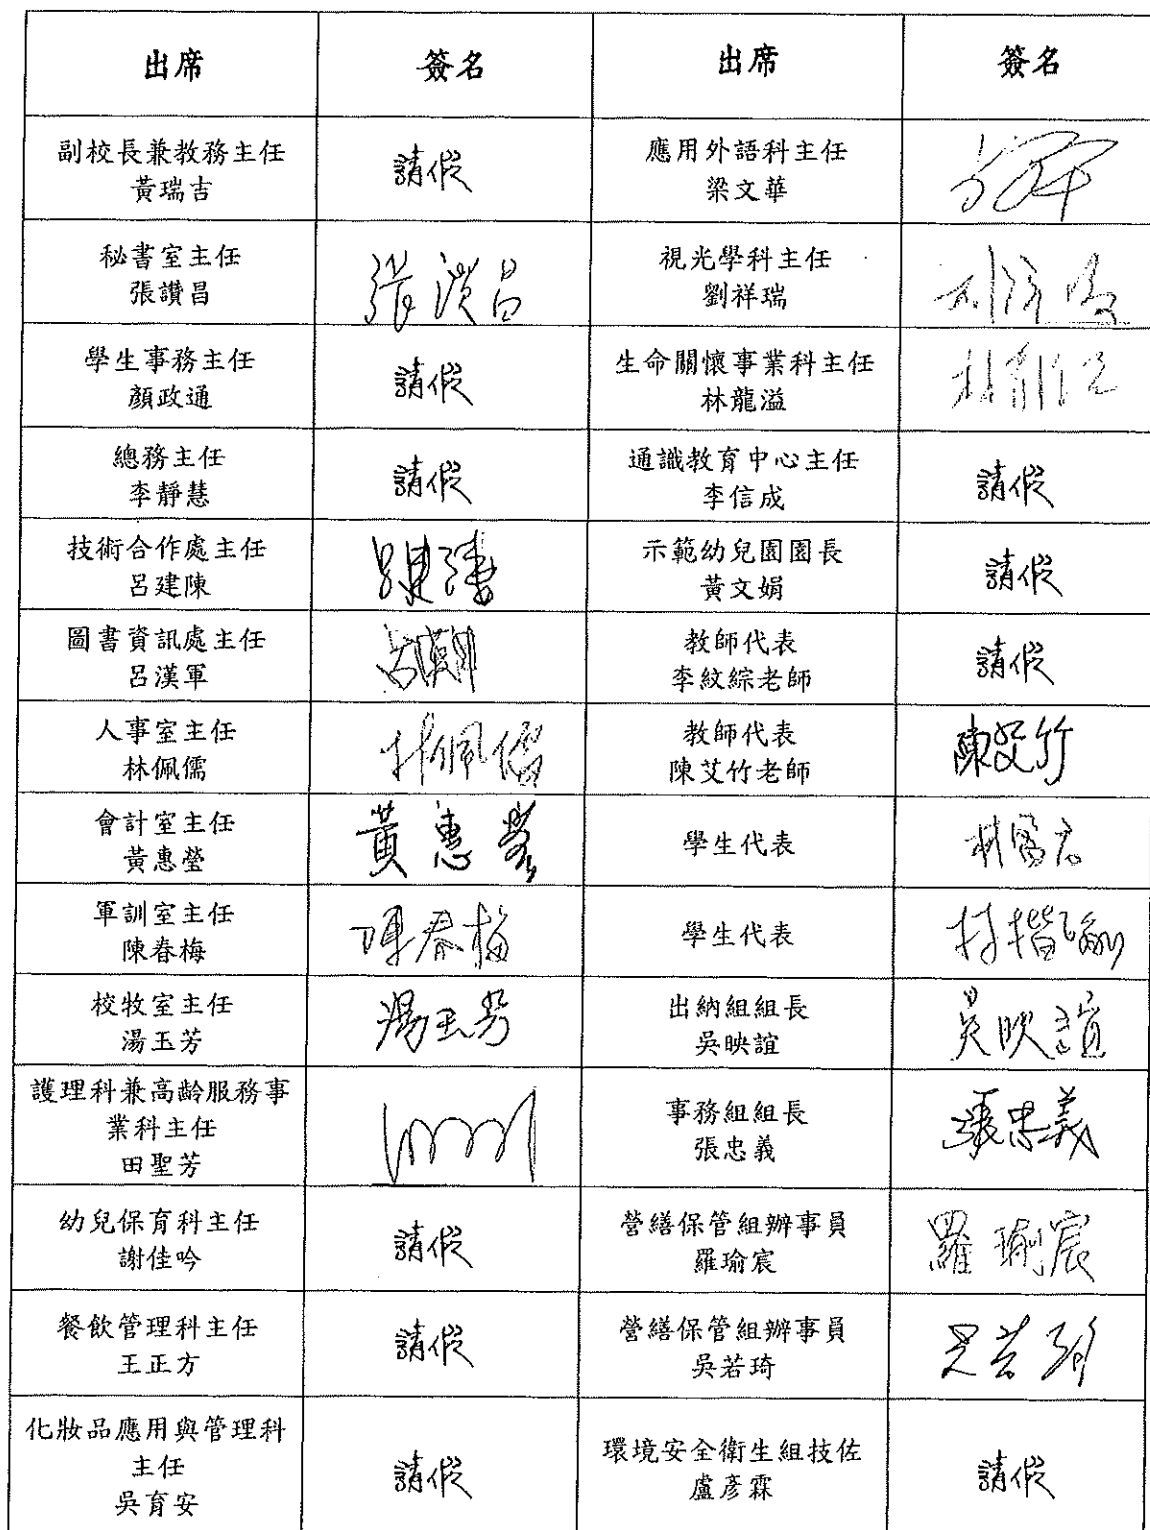 出席 簽名 出席 簽名
副校長兼教務主任
黃瑞吉
請假
應用外語科主任
梁文華
秘書室主任
張讚昌
張讚昌
視光學科主任
劉祥瑞
學生事務主任
顏政通
請假
生命關懷事業科主任
林龍溢
總務主任
李靜慧
請假
通識教育中心主任
李信成
請假
技術合作處主任
呂建陳
示範幼兒園園長
黃文娟
請假
圖書資訊處主任
呂漢軍
教師代表
李紋綜老師
請假
人事室主任
林佩儒
林佩儒
教師代表
陳艾竹老師
陳艾竹
會計室主任
黃惠瑩
黃惠瑩
學生代表
軍訓室主任
陳春梅
陳春梅
學生代表
校牧室主任
湯玉芳
湯玉芳
出納組組長
吳映誼
吳映誼
護理科兼高齡服務事
業科主任
田聖芳
事務組組長
張忠義
張忠義
幼兒保育科主任
謝佳吟
請假
營繕保管組辦事員
羅瑜宸
羅瑜宸
餐飲管理科主任
王正方
請假
營繕保管組辦事員
吳若琦
吳若琦
化妝品應用與管理科
主任
吳育安
請假
環境安全衛生組技佐
盧彥霖
請假